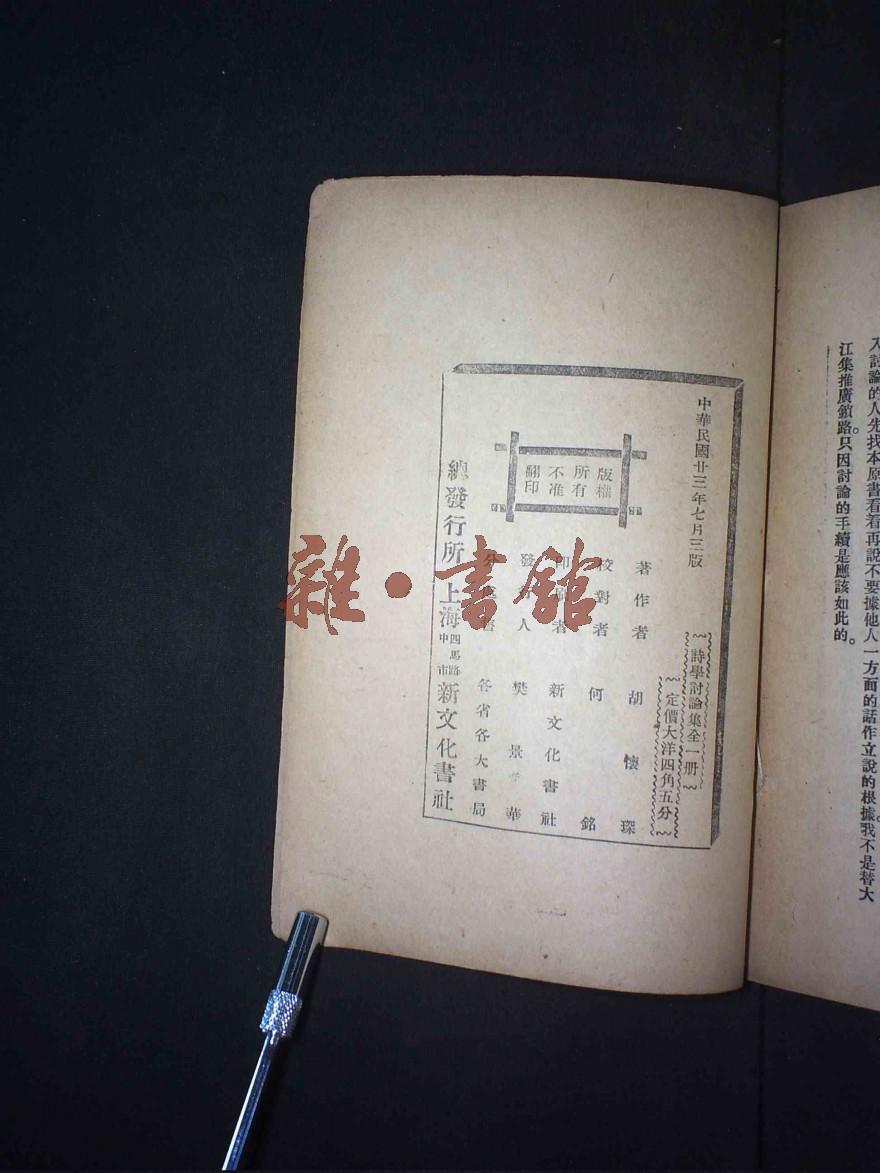 江集推廣銷路只因討論的手續是應該如此的。
討論的人先找本原書看看再說不要據他人一方面的話作立說的根據。我不是替大
中華民國廿三年七月三版
詩學討論集全一册
定價大洋四角五分
著作者 胡懷琛
校對者 何銘
印刷者 新文化書社
發行人 樊景華
各省各大書局
總發行所 上海四馬路中市新文化書社
版權所有
不准翻印
雜·書館